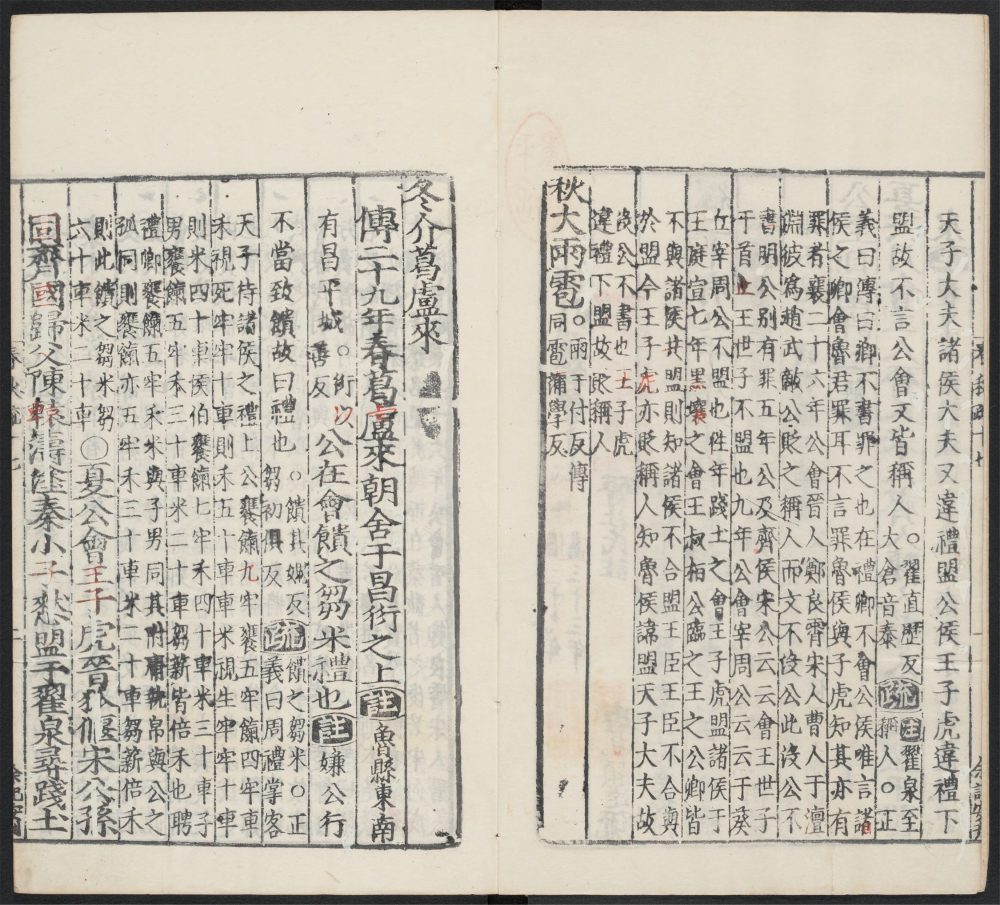 天子大夫諸侯大夫又違禮盟公侯王子虎違禮下
盟故不言公會又皆稱人 ○翟直歷反大倉音泰 疏 註翟泉至稱人○正
義曰傳曰卿不書罪之也在禮卿不會公侯唯言諸
侯之卿會魯君罪耳不言罪魯侯與子虎知其亦有
罪者襄二十六年公會晉人鄭良霄宋人曹人于澶
淵彼爲趙武敵公貶之稱人而文不没公此没公不
書明公別有罪五年公及齊侯宋公云云會王世子
于首止王世子不盟也九年公會宰周公云云于葵
丘宰周公不盟也往年踐土之會王子虎盟諸侯于
王庭宣七年黑壤之會王叔桓公臨之王之公卿皆
不與諸侯共盟則知諸侯不合盟王臣王臣不合與
於盟今王子虎亦貶稱人知魯侯諱盟天子大夫故
没公不書也王子虎
違禮下盟故貶稱人
秋大雨雹○雨于付反傳同雹蒲學反
冬介葛盧來
傳二十九年春葛盧來朝舍于昌衍之上 註 魯縣東南
有昌平城○衍以善反 公在會饋之芻米禮也 註 嫌公行
不當致饋故曰禮也○饋其媿反芻初俱反 疏 饋之芻米○正義曰周禮掌客
天子待諸侯之禮上公饔餼九牢饔五牢餼四牢車
禾視死牢牢十車則禾五十車車米視生牢牢十車
則米四十車侯伯饔餼七牢禾四十車米三十車子
男饔餼五牢禾三十車米二十車芻薪皆倍禾也聘
禮卿饔餼五牢禾米與子男同其附庸執帛與公之
孤同則饔餼亦五牢禾三十車米二十車芻薪倍禾
則此饋之芻米芻
六十車米二十車○夏公會王子虎晉狐偃宋公孫
固齊國歸父陳轅濤塗秦小子憖盟于翟泉尋踐土